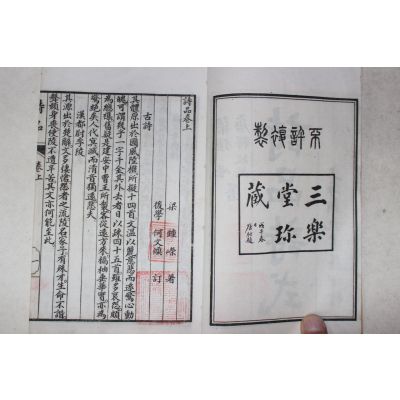 不許複製
三樂
堂珍
藏
詩品卷上
梁 鍾嶸 著
後學 何文煥 訂
古詩
其體原出於國風陸機所擬十四首文溫以麗意悲而遠驚心動
魄可謂幾乎一字千金其外去者日以疎四十五首雖多哀怨頗
為總雜舊疑是建安中曹王所製客從遠方來橘柚垂華實亦為
驚絕矣人代冥滅而清音獨遠悲夫
漢都尉李陵
其源出於楚辭文多悽愴怨者之流陵名家子有殊才生命不諧
聲頹身喪使陵不遭辛苦其文亦何能至此
詩品 卷上